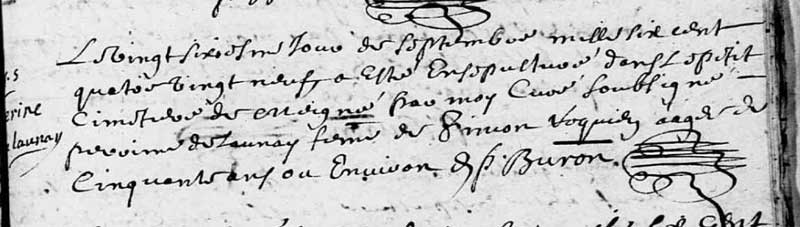 s
erine
launay
Le vingt sixiesme Jour de septembre mille six cent
quatre vingt neuf a Esté Ensepulturé dans Le petit
Cimetiere de meigné par moy Curé soubsigné
perrine delaunay feme de Simon aagee de
Cinquante ans ou Environ Buron